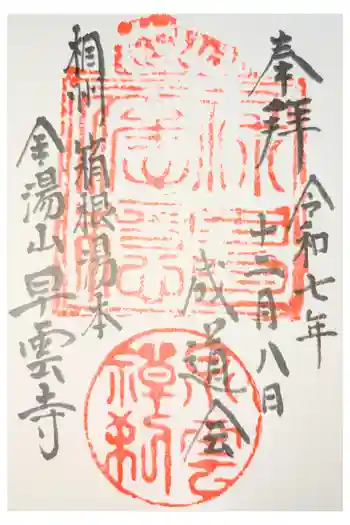 奉拝
令和七年
十二月八日
成道会
相州箱根湯本
金湯山早雲寺